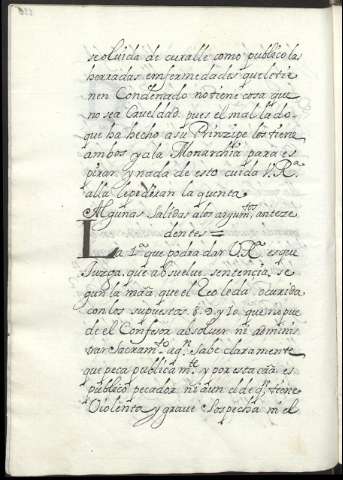 se oluida de curalle como publico, las
herradas emfermedades que le tie
nen Condenado no tiene cosa que
no sea Crueldad. pues el mal lado
que ha hecho a su Prinzipe los tiene
ambos y a la Monarchia para es
pirar, y nada de esto cuida V. Rª
alla le pediran la quenta
Algunas Salidas a los argumtos anteze
dentes =
La 1ª que podra dar V. Rª es que
Juzga que absuelue sentencia se
gun la mªra que el Reo le da. ocurida
con los supuestos 8. 9 y 10 que no pue
de el Confesor absoluer ni adminis
trar Sacramto. a qn. Sabe claramente
que peca publicamte. y por esta caª es
publico pecador ni aun el de qn. tiene
Violenta y graue Sospecha ni el